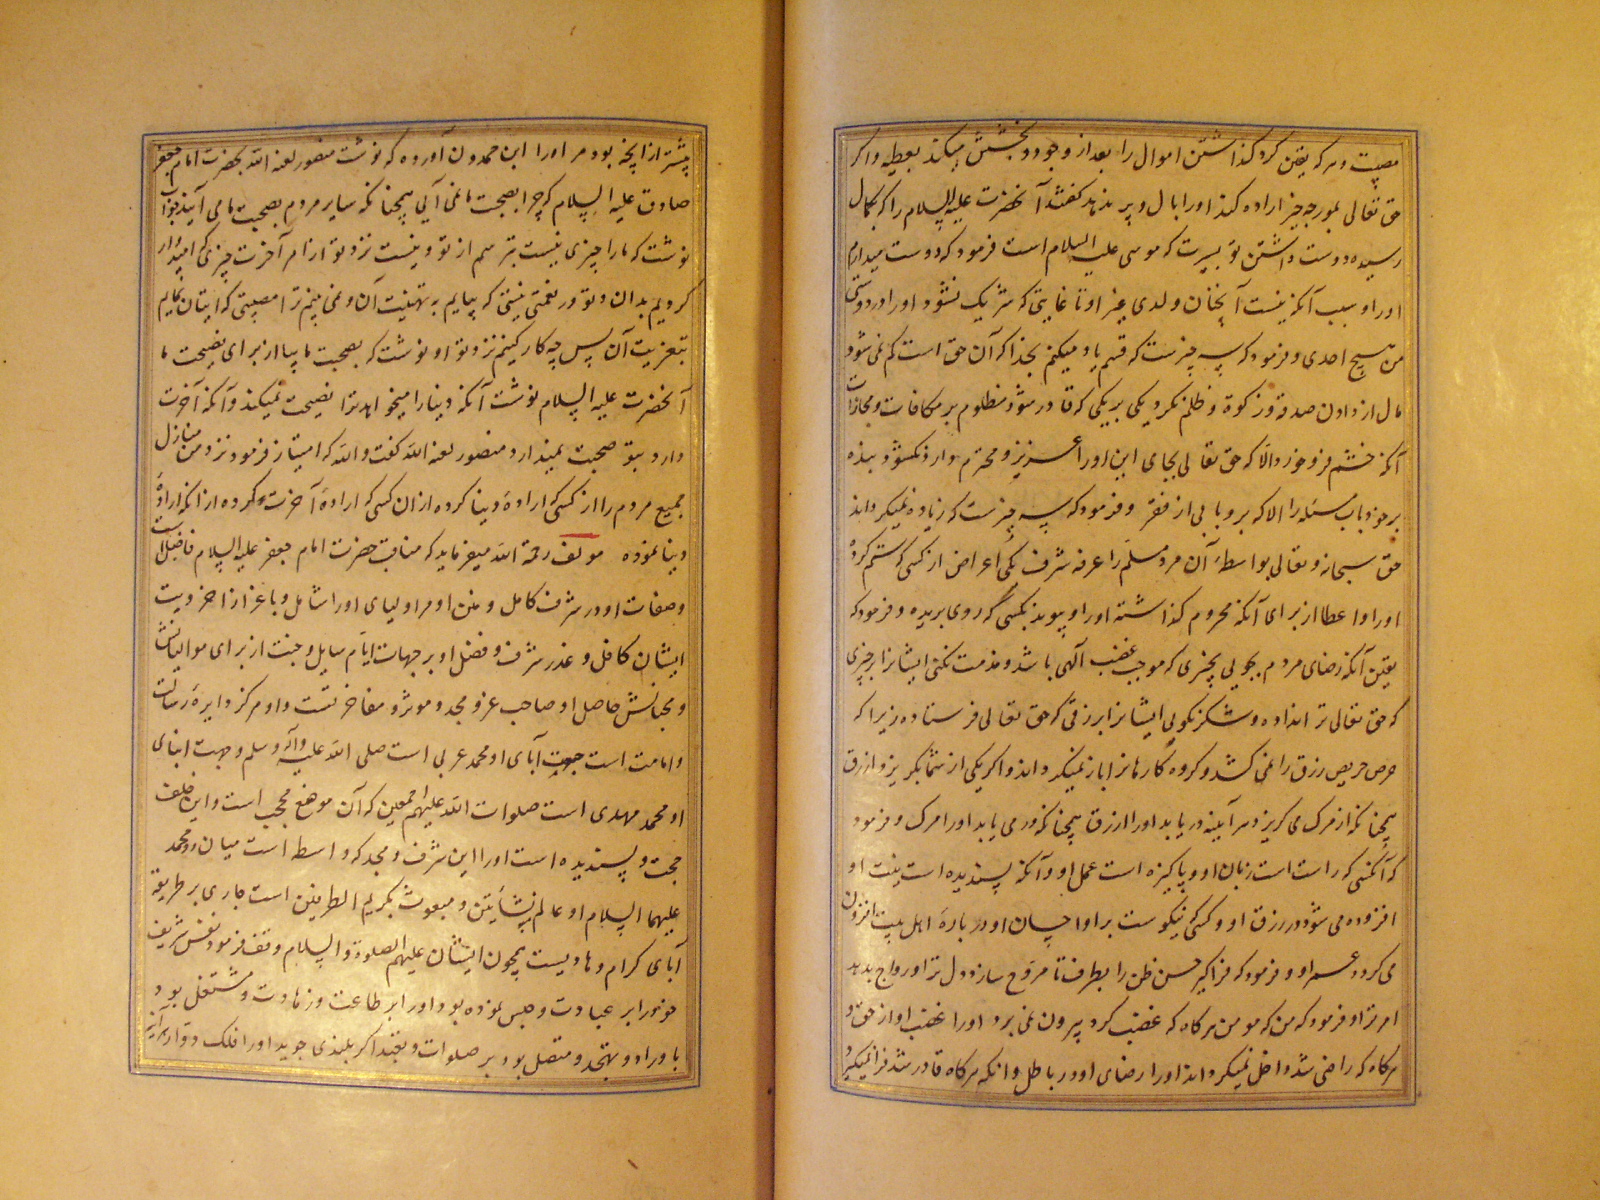 مصیبت و هر که یقین کرد گذاشتن اموال را بعد از وجود و بخشش میکند بعطیه و اکر
حق تعالی بمورچه چیز اراده کند اورا بال و پر بدهد گفتند آنحضرت علیه السلام را که بکمال
رسیده دوست داشتن تو بپسرت که موسی علیه السلام است فرمود که دوست میدارم
اورا و سبب آنکه نیست آنچنان ولدی غیر او تا غایتی که شریک نشود اورا در دوستی
من هیچ احدی و فرمود که سه چیزست که قسم یاد میکنم بخدا که آن حق است کم نمی شود
مال از دادن صدقه و زکوة و ظلم نکرد یکی بر یکی که قادر شود مظلوم بر مکافات و مجازات
آنکه خشم فرو خورد الا که حق تعالی بجای این اورا عزیز و محترم دارد نکشود بنده
بر خود باب مسئله را الا که برو بابی از فقر و فرمود که سه چیزست که زیاده نمیکرداند
حق سبحانه و تعالی بواسطه آن مرد مسلم را عرفه شرف یکی اعراض از کسی که ستم کرده
اورا و اعطا از برای آنکه محروم گذاشته اورا و پیوند بکسی که روی بریده و فرمود که
یقین آنکه رضای مردم بجویی بچیزی که موجب غضب آلهی باشد و مذمت نکنی ایشانرا بر چیزی
که حق تعالی ترا نداده و شکر نکویی ایشانرا بر رزقی که حق تعالی فرستاده زیرا که
حرص حریص رزق را نمی کشد و کروه کارهانرا باز نمیکرداند و اکر یکی از شما بکریزد از رزق
همچنانکه از مرک می کریزد هر آینه دریابد اورا رزق همچنانکه در می یابد اورا مرک و فرمود
که آنکسی که راست است زبان او و پاکیزه است عمل او و آنکه پسندیده است نیت او
افزوده می شود در رزق او و کسی که نیکوست بر او احسان او در بارهٔ اهل بیت افزون
می کردد عمر او و فرمود که فراکیر حسن ظن را بطرف تا مروح سازد دل ترا و رواج بدهد
امر ترا و فرمود که من که مومن هرکاه که غضب کرد بیرون نمی برد اورا غضب او از حق و
هرکاه که راضی شد داخل نمیکرداند اورا رضای او در باطل و انکه هرکاه قادر شد فرا نمیکیرد
پیشتر از انچه بود مر اورا ابن حمدون آورده که نوشت منصور لعنه الله بحضرت امام جعفر
صادق علیه السلام که چرا بصحبت ما نمی آیی همچنانکه سایر مردم بصحبت ما می آیند جواب
نوشت که مارا چیزی نیست بترسم از تو و نیست نزد تو از امر آخرت چیزی که امیدوار
کردیم بدان و تو در نعمتی نیستی که بیایم به تهنیت آن و نمی بینم ترا مصیبتی که اتیان نمایم
بتعزیت آن پس چه کار کنیم نزد تو او نوشت که بصحبت ما بیا از برای نصیحت ما
آنحضرت علیه السلام نوشت آنکه دنیا را میخواهد ترا نصیحت نمیکند و آنکه آخرت
دارد بتو صحبت نمیدارد منصور لعنه الله گفت و الله که امتیاز فرمود نزد من منازل
جمیع مردم را از کسی که ارادهٔ دنیا کرده از ان کسی که ارادهٔ آخرت کرده از آنکه ارادهٔ
دنیا نموده مولف رحمة الله میفرماید که مناقب حضرت امام جعفر علیه السلام فاضل است
و صفات او در شرف کامل و منن او مر اولیای اورا شامل و باعزاز اخرویت
ایشان کافل و عذر شرف و فضل او بر جهات ایام سایل و جنت از برای موالیانش
و محبانش حاصل او صاحب عز و مجد و موثر و مفاخرتست و او مرکز دایرهٔ رسالت
و امامت است جهت آبای او محمد عربی است صلی الله علیه و آله وسلم و جهت ابنای
او محمد مهدی است صلوات الله علیهم اجمعین که آن موضع محجب است و این خلف
حجت و پسندیده است اورا این شرف و مجد که واسطه است میان دو محمد
علیهما السلام او عالم نشأتین و مبعوث بکریم الطرفین است جاری بر طریقه
آبای کرام و هادیست همچون ایشان علیهم الصلوة و السلام وقف فرمود نفس شریف
خودرا بر عبادت و حبس نموده بود اورا بر طاعت و زهادت و مشتغل بود
باوراد و تهجد و متصل بود بر صلوات و تعبد اکر بلندی جوید اورا فلک دوار هر آینه